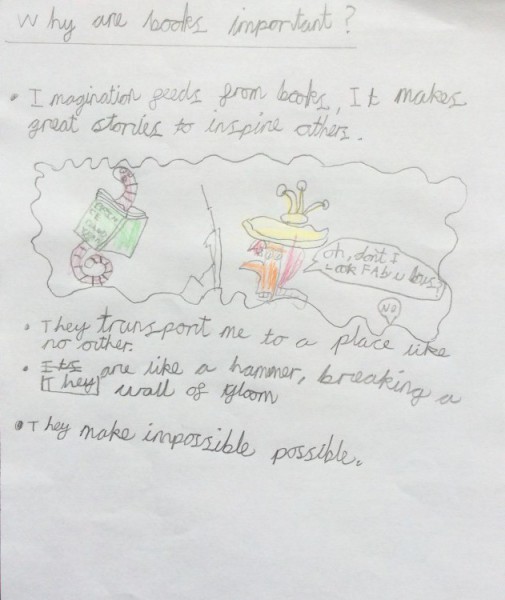 Why are books important?
• Imagination feeds from books, It makes
great stories to inspire others.
oh, don't I
Look FAbulous?
NO
• They transport me to a place like
no other.
• Its are like a hammer, breaking a
They wall of gloom
• They make impossible possible.